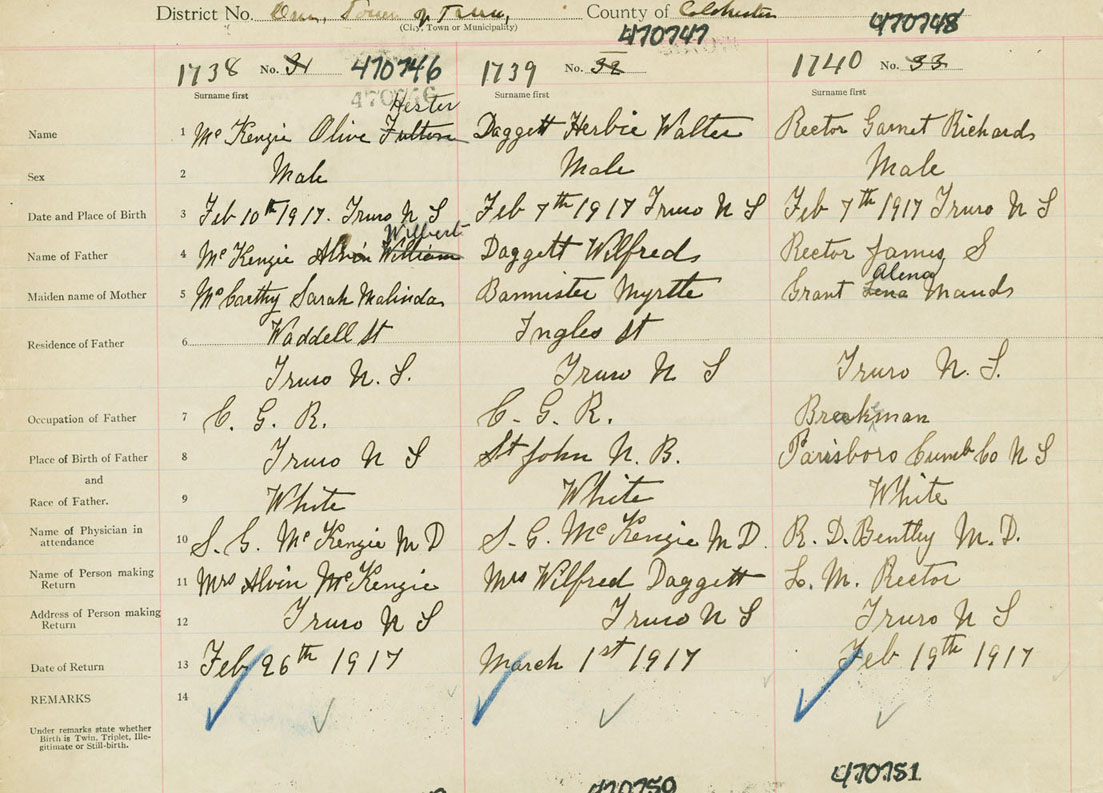 District No. One, Town of Truro, County of Colchester
(City, Town or Municipality)
470747 470748
1738 No. 31 470746 1739 No. 32 1740 No. 33
Surname first 470746 Surname first Surname first
Hester
Name 1 McKenzie Olive Fulton Daggett Herbie Walter Rector Garnet Richards
Sex 2 Male Male Male
Date and Place of Birth 3 Feb 10th 1917. Truro N S Feb 7th 1917 Truro N S Feb 7th 1917 Truro N S
Wilbert
Name of Father 4 McKenzie Alvin William Daggett Wilfred Rector James S
Alena
Maiden name of Mother 5 McCarthy Sarah Malinda Bannister Myrtle Grant Lena Maud
Residence of Father 6 Waddell St Ingles St
Truro N. S. Truro N S Truro N. S.
Occupation of Father 7 C. G. R. C. G. R. Breakman
Place of Birth of Father 8 Truro N S St John N. B. Parisboro Cumb Co N S
and
Race of Father. 9 White White White
Name of Physician in attendance 10 S. G. McKenzie M D S. G. McKenzie M D. R. D. Bentley M. D.
Name of Person making Return 11 Mrs Alvin McKenzie Mrs Wilfred Daggett L. M. Rector
Address of Person making Return 12 Truro N S Truro N S Truro N S
Date of Return 13 Feb 26th 1917 March 1st 1917 Feb 19th 1917
REMARKS 14
Under remarks state whether
Birth is Twin, Triplet, Ille-
gitimate or Still-birth.
470751